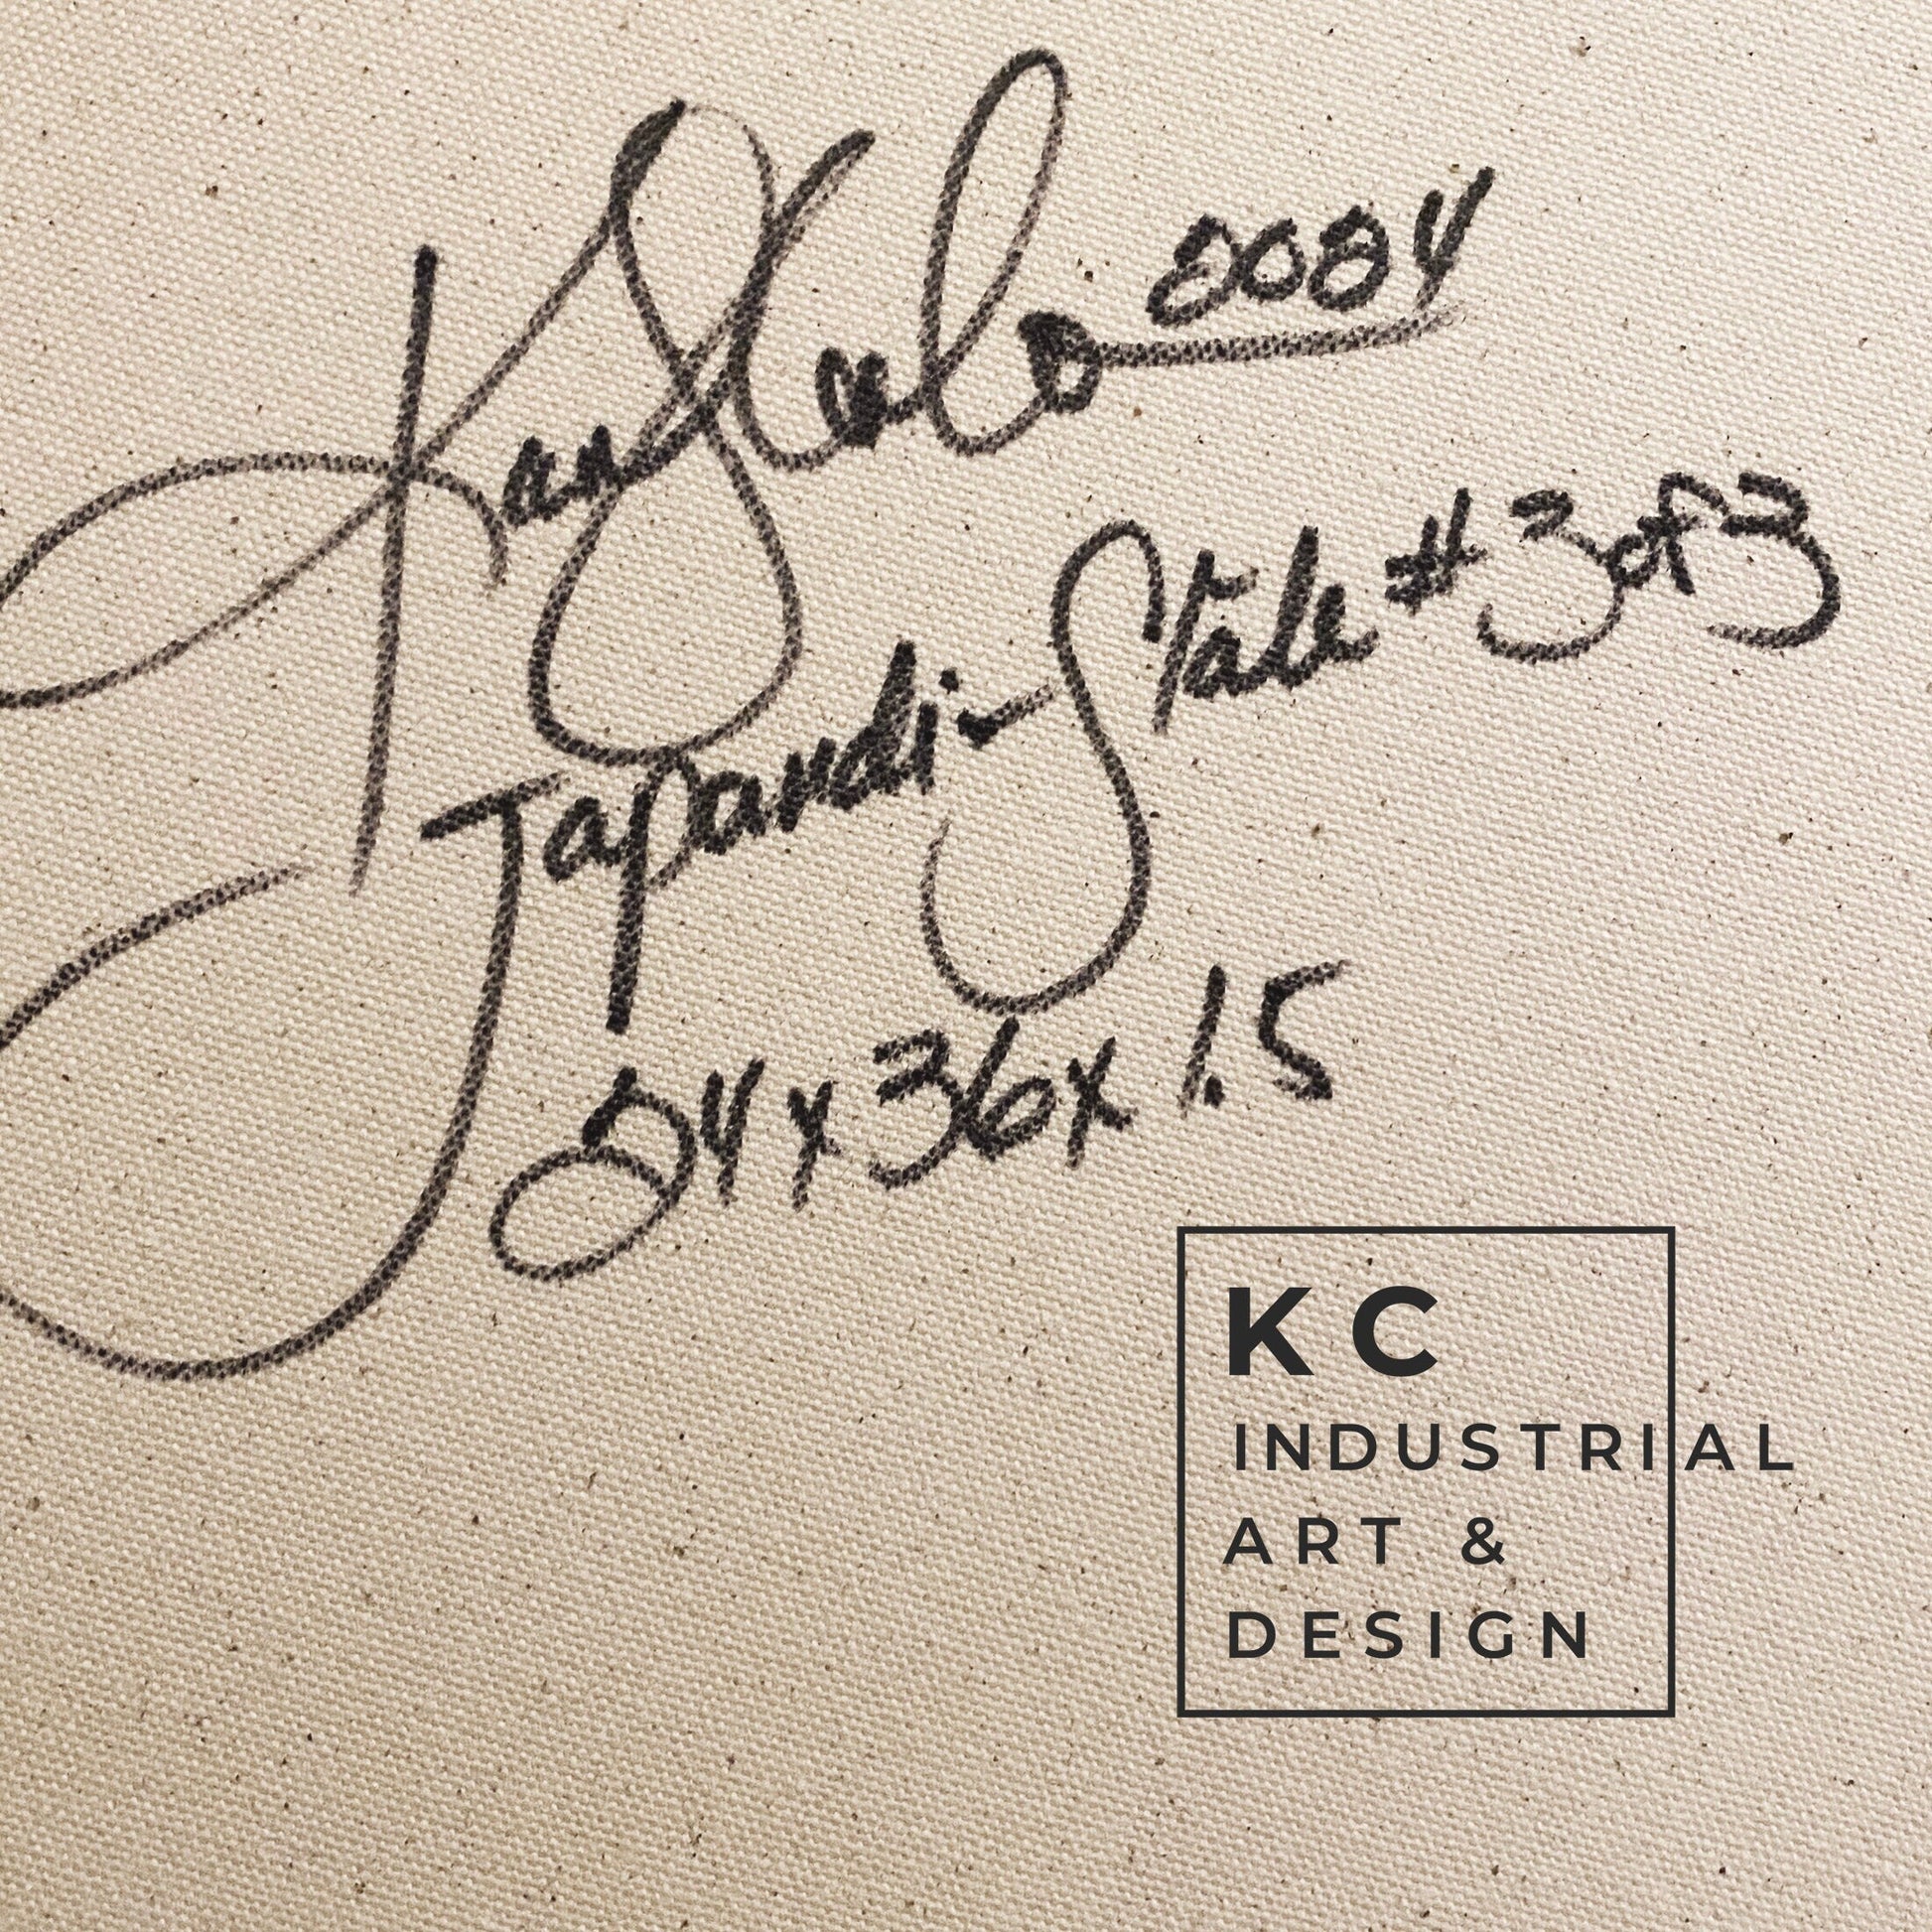 2024
Japandi-State #3 of 3
24 x 36 x 1.5
KC
INDUSTRIAL
ART &
DESIGN